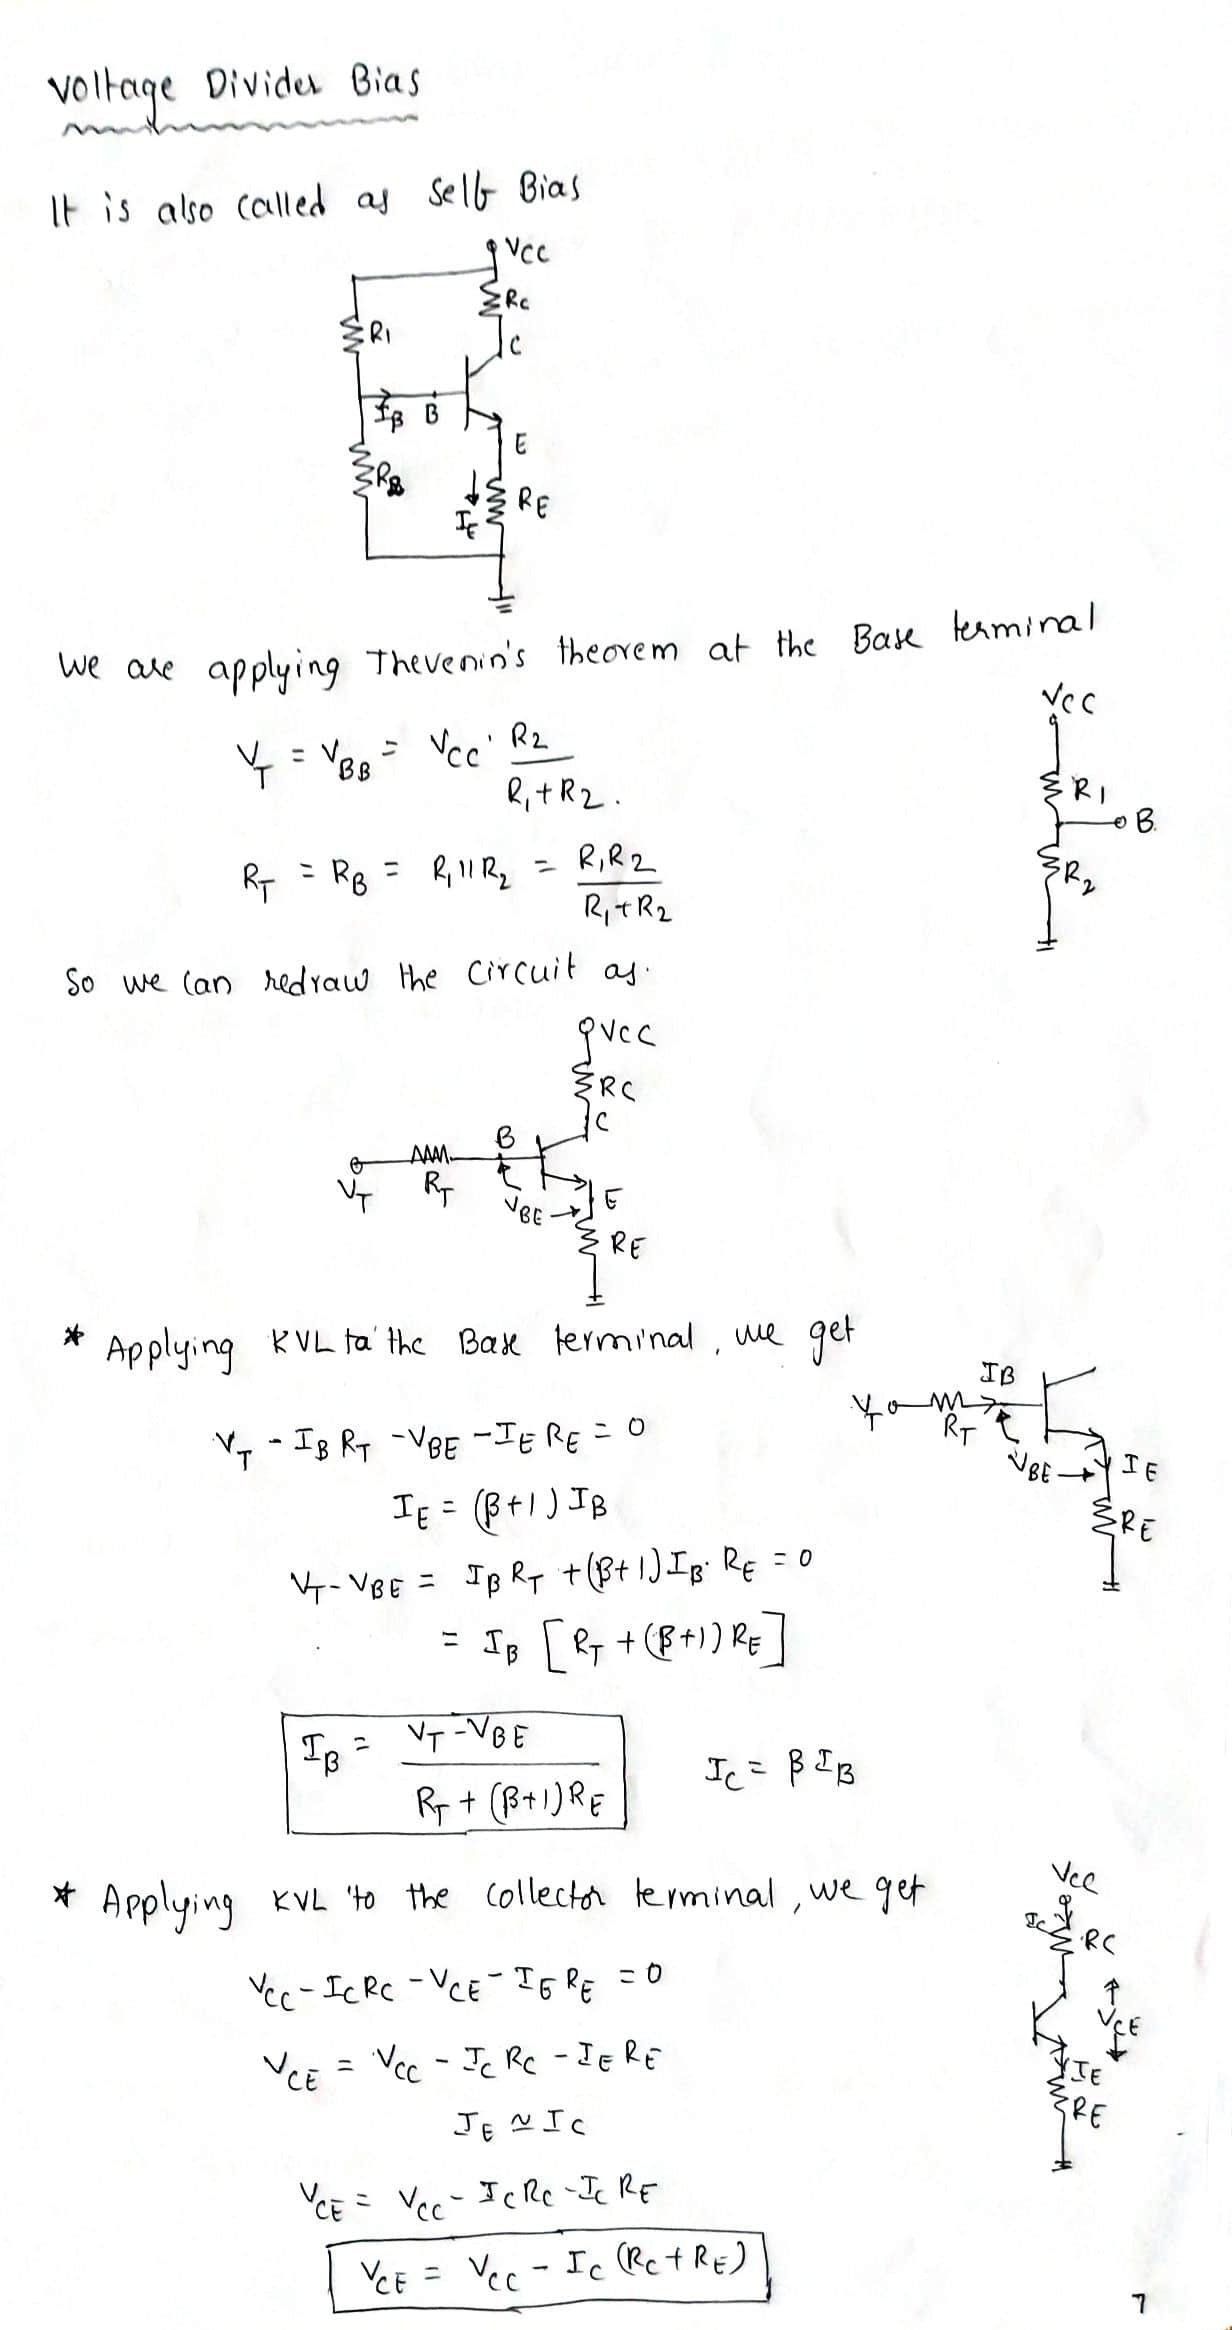 Voltage Divider Bias
It is also called as Self Bias
VCC
RC
R1
C
IB B
E
RB
IE
RE
We are applying Thevenin's theorem at the Base terminal
VT = VBB = VCC · R2 / R1+R2.
VCC
R1
B.
R2
RT = RB = R1 || R2 = R1R2 / R1+R2
So we can redraw the circuit as.
VCC
RC
C
B
VT
RT
VBE
E
RE
* Applying KVL to the Base terminal, we get
IB
VT
RT
VBE
IE
RE
VT - IB RT - VBE - IE RE = 0
IE = (β+1) IB
VT - VBE = IB RT + (β+1) IB · RE = 0
= IB [ RT + (β+1) RE ]
IB = VT - VBE / RT + (β+1) RE
IC = β IB
* Applying KVL to the collector terminal, we get
VCC
IC
RC
VCE
IE
RE
VCC - IC RC - VCE - IE RE = 0
VCE = VCC - IC RC - IE RE
IE ≃ IC
VCE = VCC - IC RC - IC RE
VCE = VCC - IC (RC + RE)
7